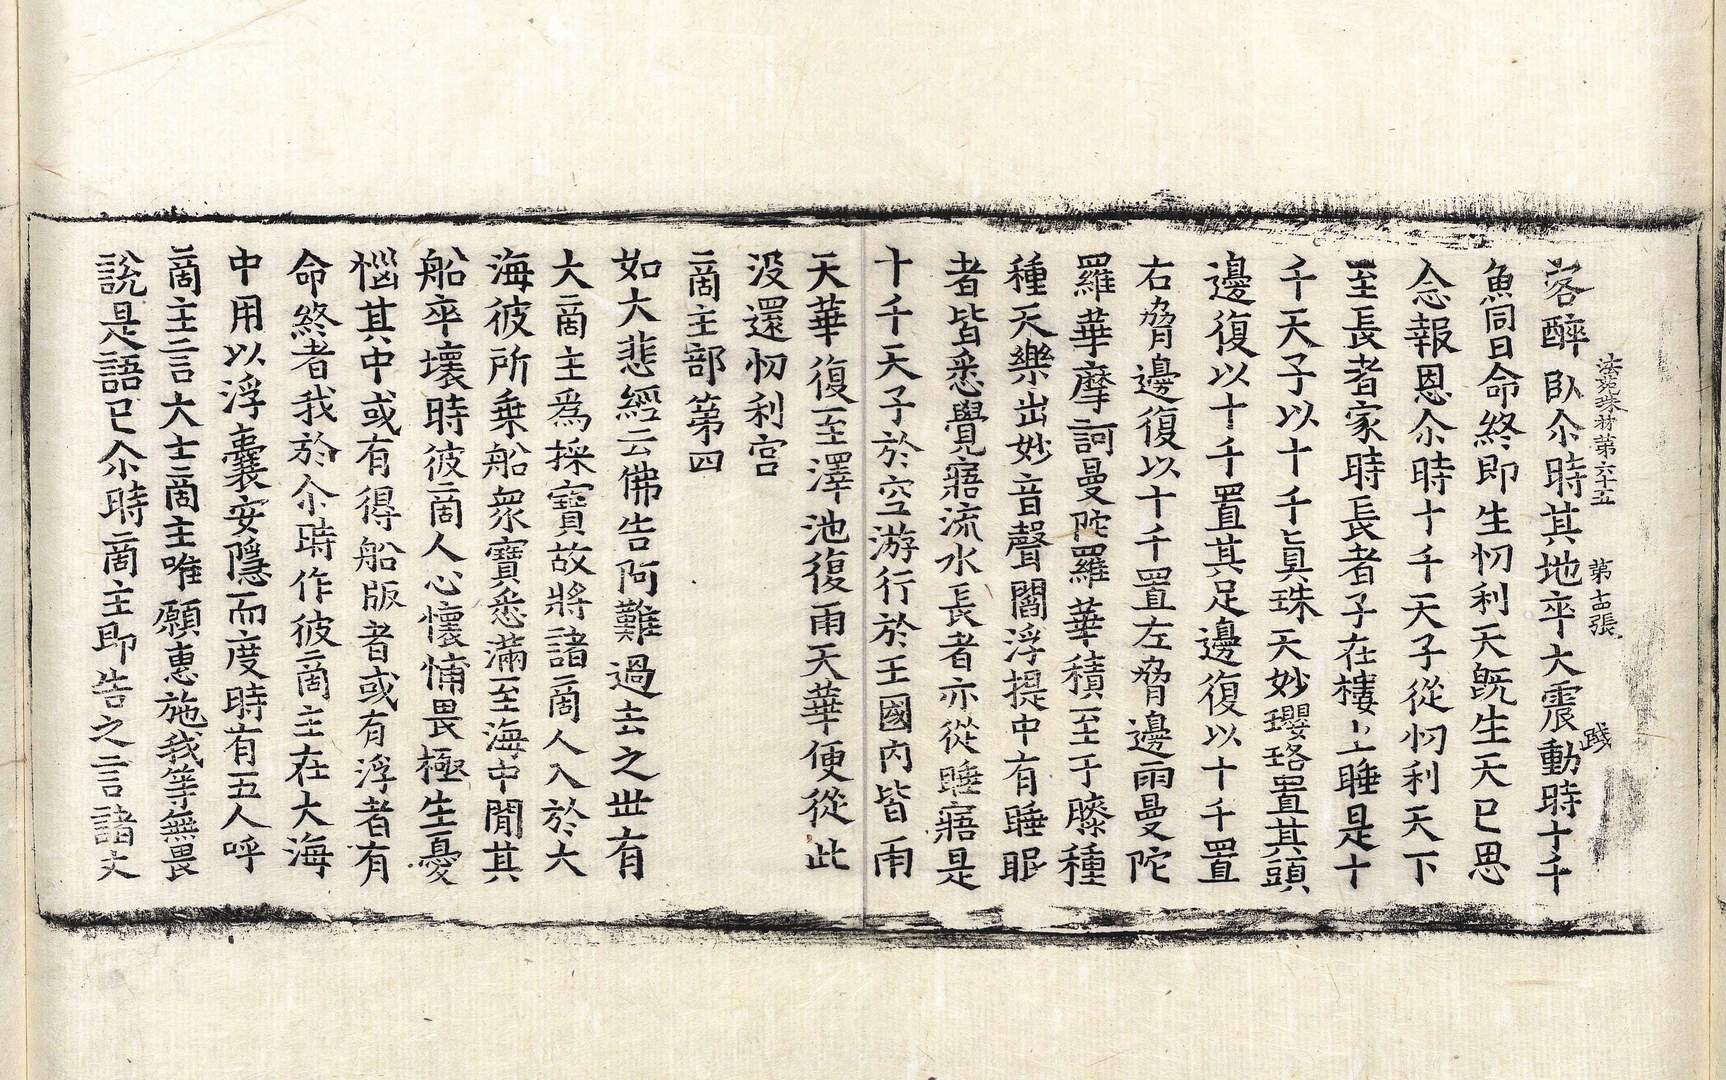 法苑珠林第六十五　第十四張　踐
客醉臥尒時其地卒大震動時十千
魚同日命終即生忉利天旣生天已思
念報恩尒時十千天子從忉利天下
至長者家時長者子在樓上睡是十
千天子以十千眞珠天妙瓔珞置其頭
邊復以十千置其足邊復以十千置
右脅邊復以十千置左脅邊雨曼陀
羅華摩訶曼陀羅華積至于膝種
種天樂出妙音聲閻浮提中有睡眠
者皆悉覺寤流水長者亦從睡寤是
十千天子於空游行於王國內皆雨
天華復至澤池復雨天華便從此
沒還忉利宮
啇主部第四
如大悲經云佛告阿難過去之世有
大啇主爲採寶故將諸啇人入於大
海彼所乗船衆寶悉滿至海中閒其
船卒壞時彼啇人心懷怖畏極生憂
惱其中或有得船版者或有浮者有
命終者我於尒時作彼啇主在大海
中用以浮囊安隱而度時有五人呼
啇主言大士啇主唯願惠施我等無畏
說是語已尒時啇主即告之言諸丈